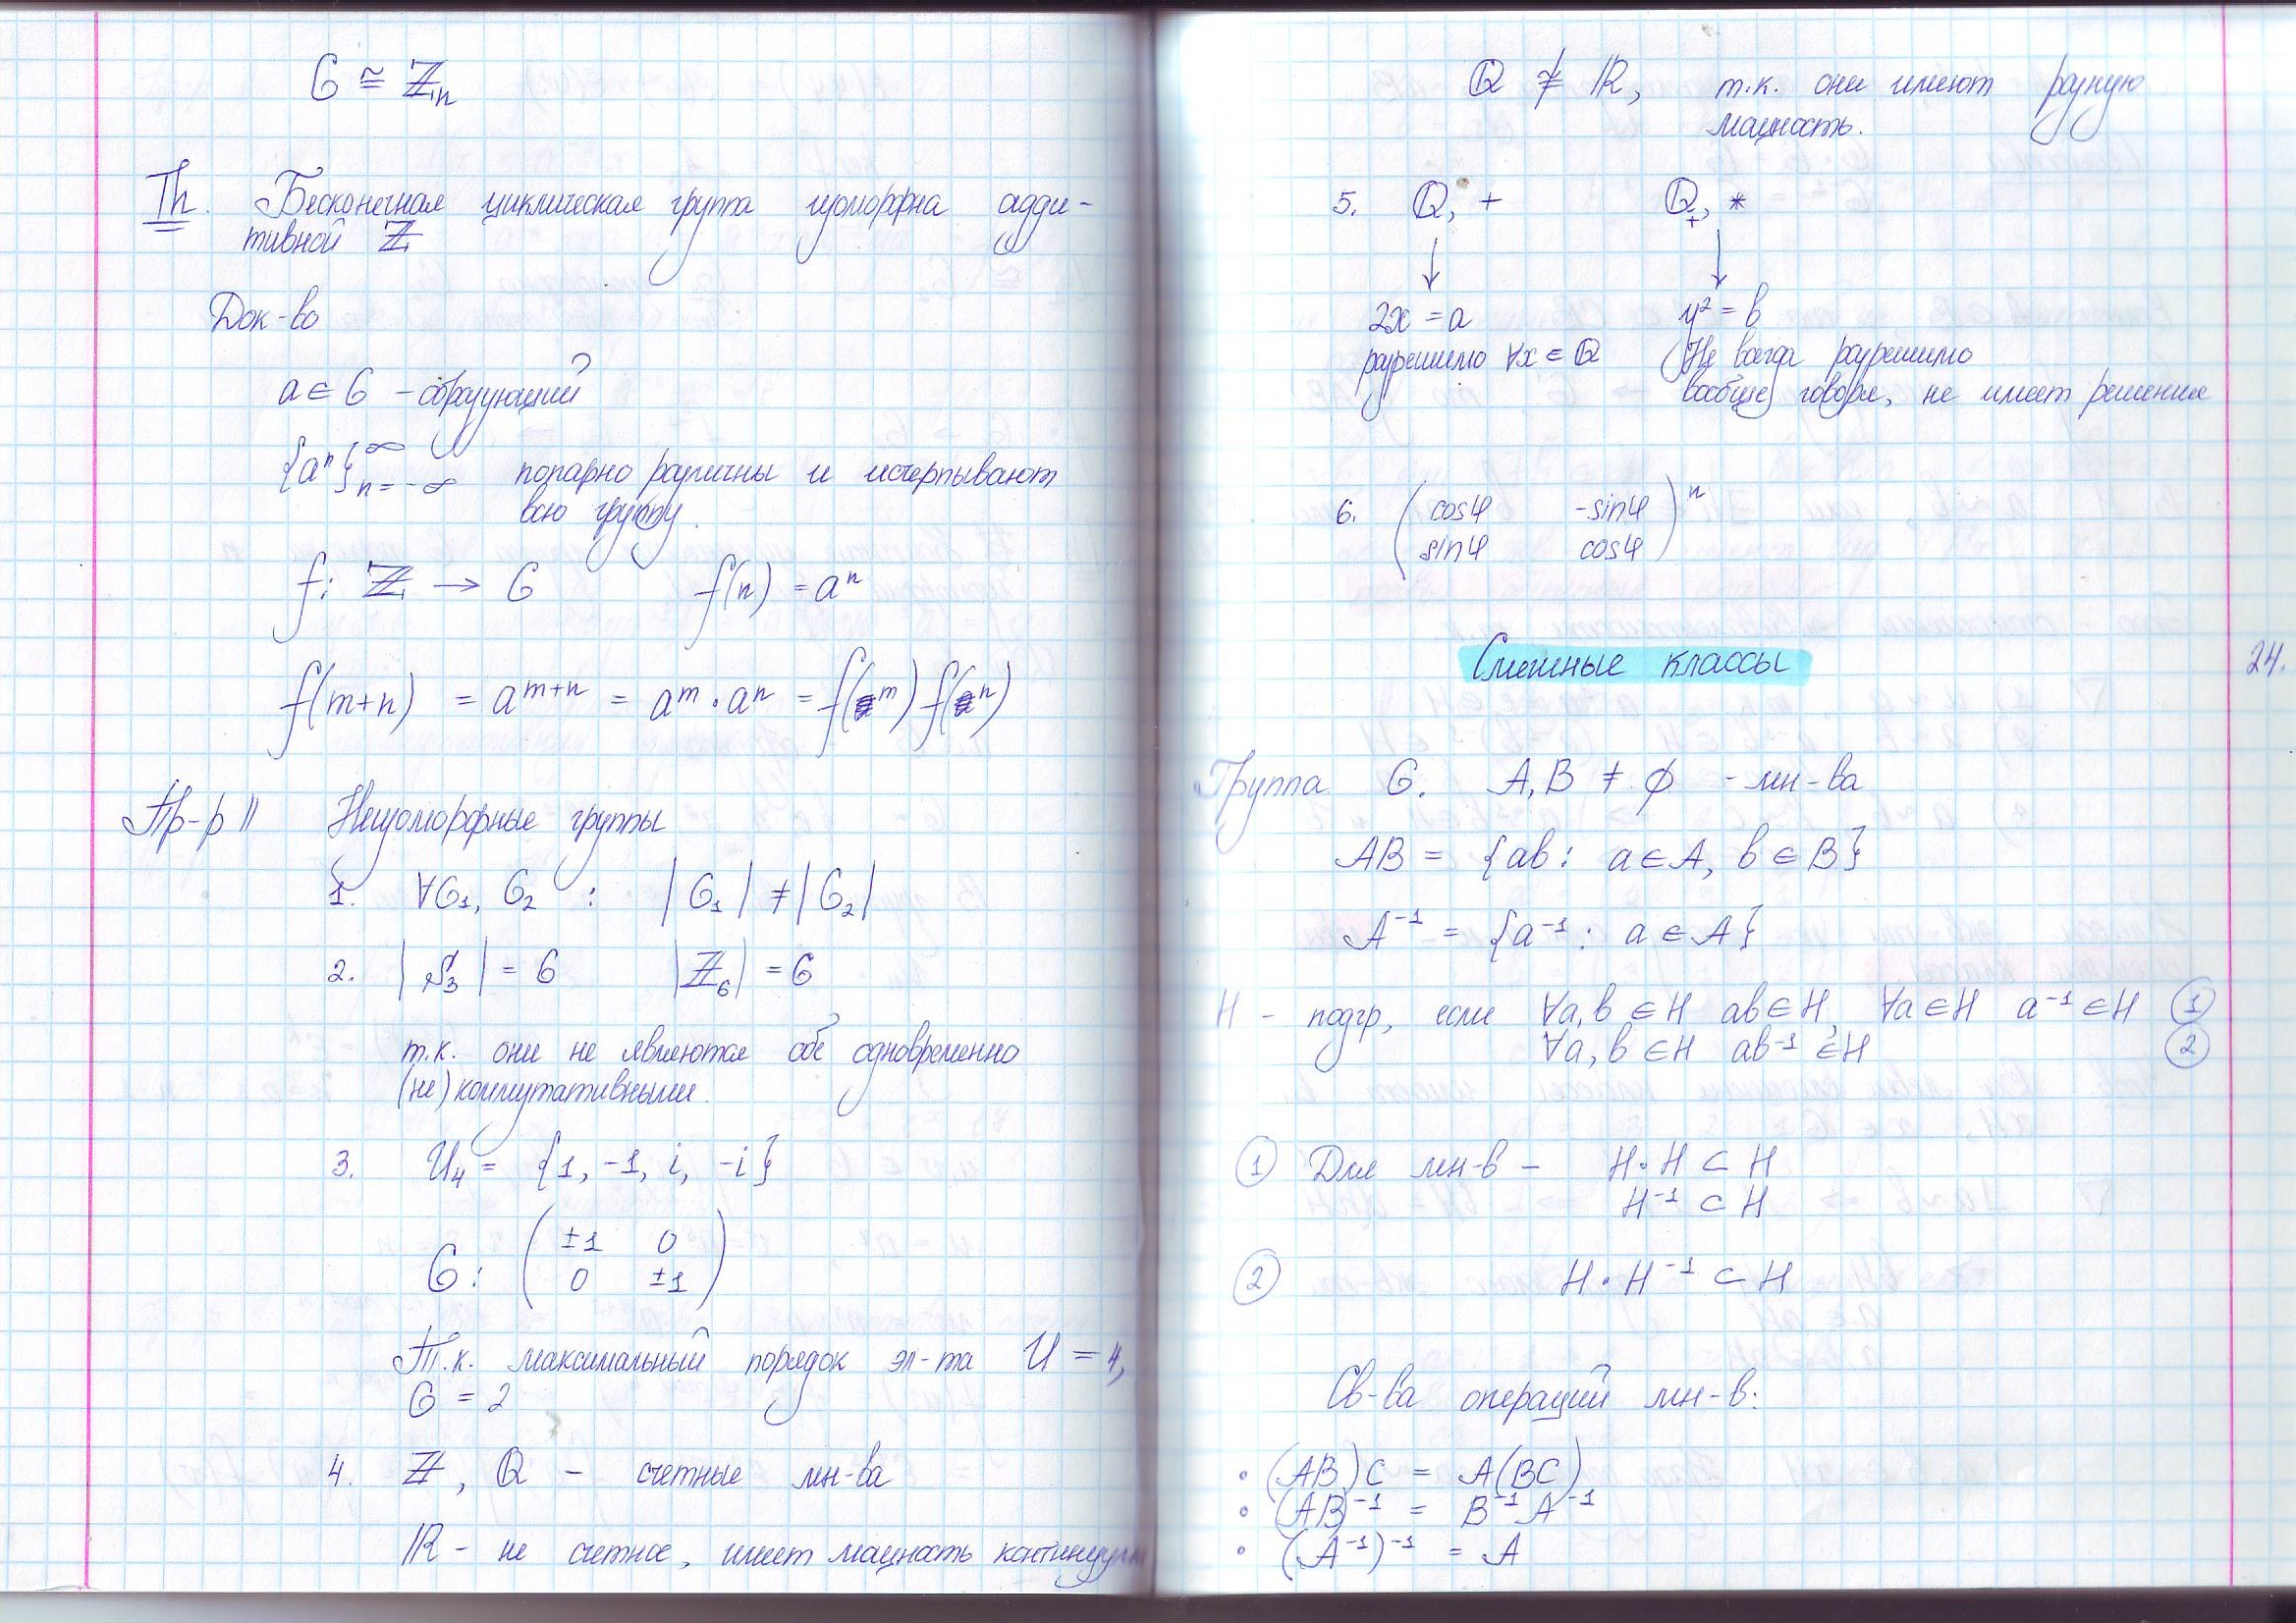 G ≅ ℤₙ
Th. Бесконечная циклическая группа изоморфна адди-
тивной ℤ
Док-во
a ∈ G – образующий
{aⁿ}_{n=-∞}^{∞} попарно различны и исчерпывают
всю группу.
f: ℤ → G f(n) = aⁿ
f(m+n) = a^{m+n} = a^m · a^n = f(m) f(n)
Пр-р || Неизоморфные группы
1. ∀G₁, G₂ : |G₁| ≠ |G₂|
2. |S₃| = 6 |ℤ₆| = 6
т.к. они не являются обе одновременно
(не) коммутативными.
3. U₄ = {1, -1, i, -i}
G: ( ±1 0
0 ±1 )
Т.к. максимальный порядок эл-та U = 4,
G = 2
4. ℤ, ℚ – счетные мн-ва
ℝ – не счетное, имеет мощность континуума
ℚ ≇ ℝ, т.к. они имеют разную
мощность.
5. ℚ, + ℚ₊, *
↓ ↓
2x = a y² = b
разрешимо ∀x ∈ ℚ Не всегда разрешимо
вообще говоря, не имеет решения
6. ( cosφ -sinφ )ⁿ
sinφ cosφ
Смежные классы
24.
Группа G. A, B ≠ ∅ - мн-ва
AB = {ab : a ∈ A, b ∈ B}
A⁻¹ = {a⁻¹ : a ∈ A}
H – подгр, если ∀a, b ∈ H ab ∈ H, ∀a ∈ H a⁻¹ ∈ H ①
∀a, b ∈ H ab⁻¹ ∈ H ②
① Для мн-в – H·H ⊂ H
H⁻¹ ⊂ H
② H·H⁻¹ ⊂ H
Св-ва операций мн-в:
∘ (AB)C = A(BC)
∘ (AB)⁻¹ = B⁻¹A⁻¹
∘ (A⁻¹)⁻¹ = A